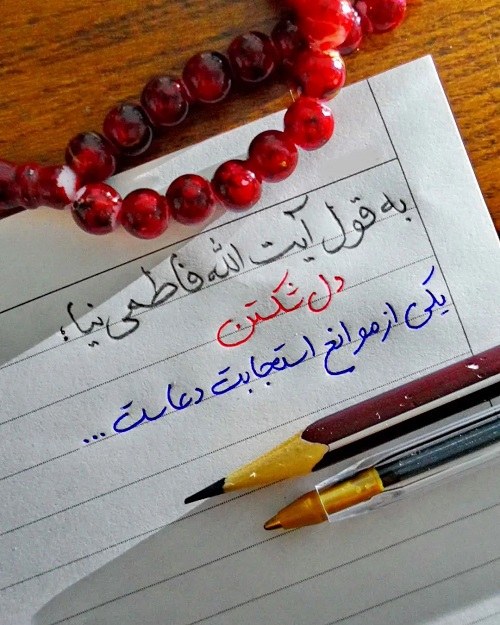 به قول آیت الله فاطمی نیا؛
دل شکستن
یکی از موانع استجابت دعاست ...